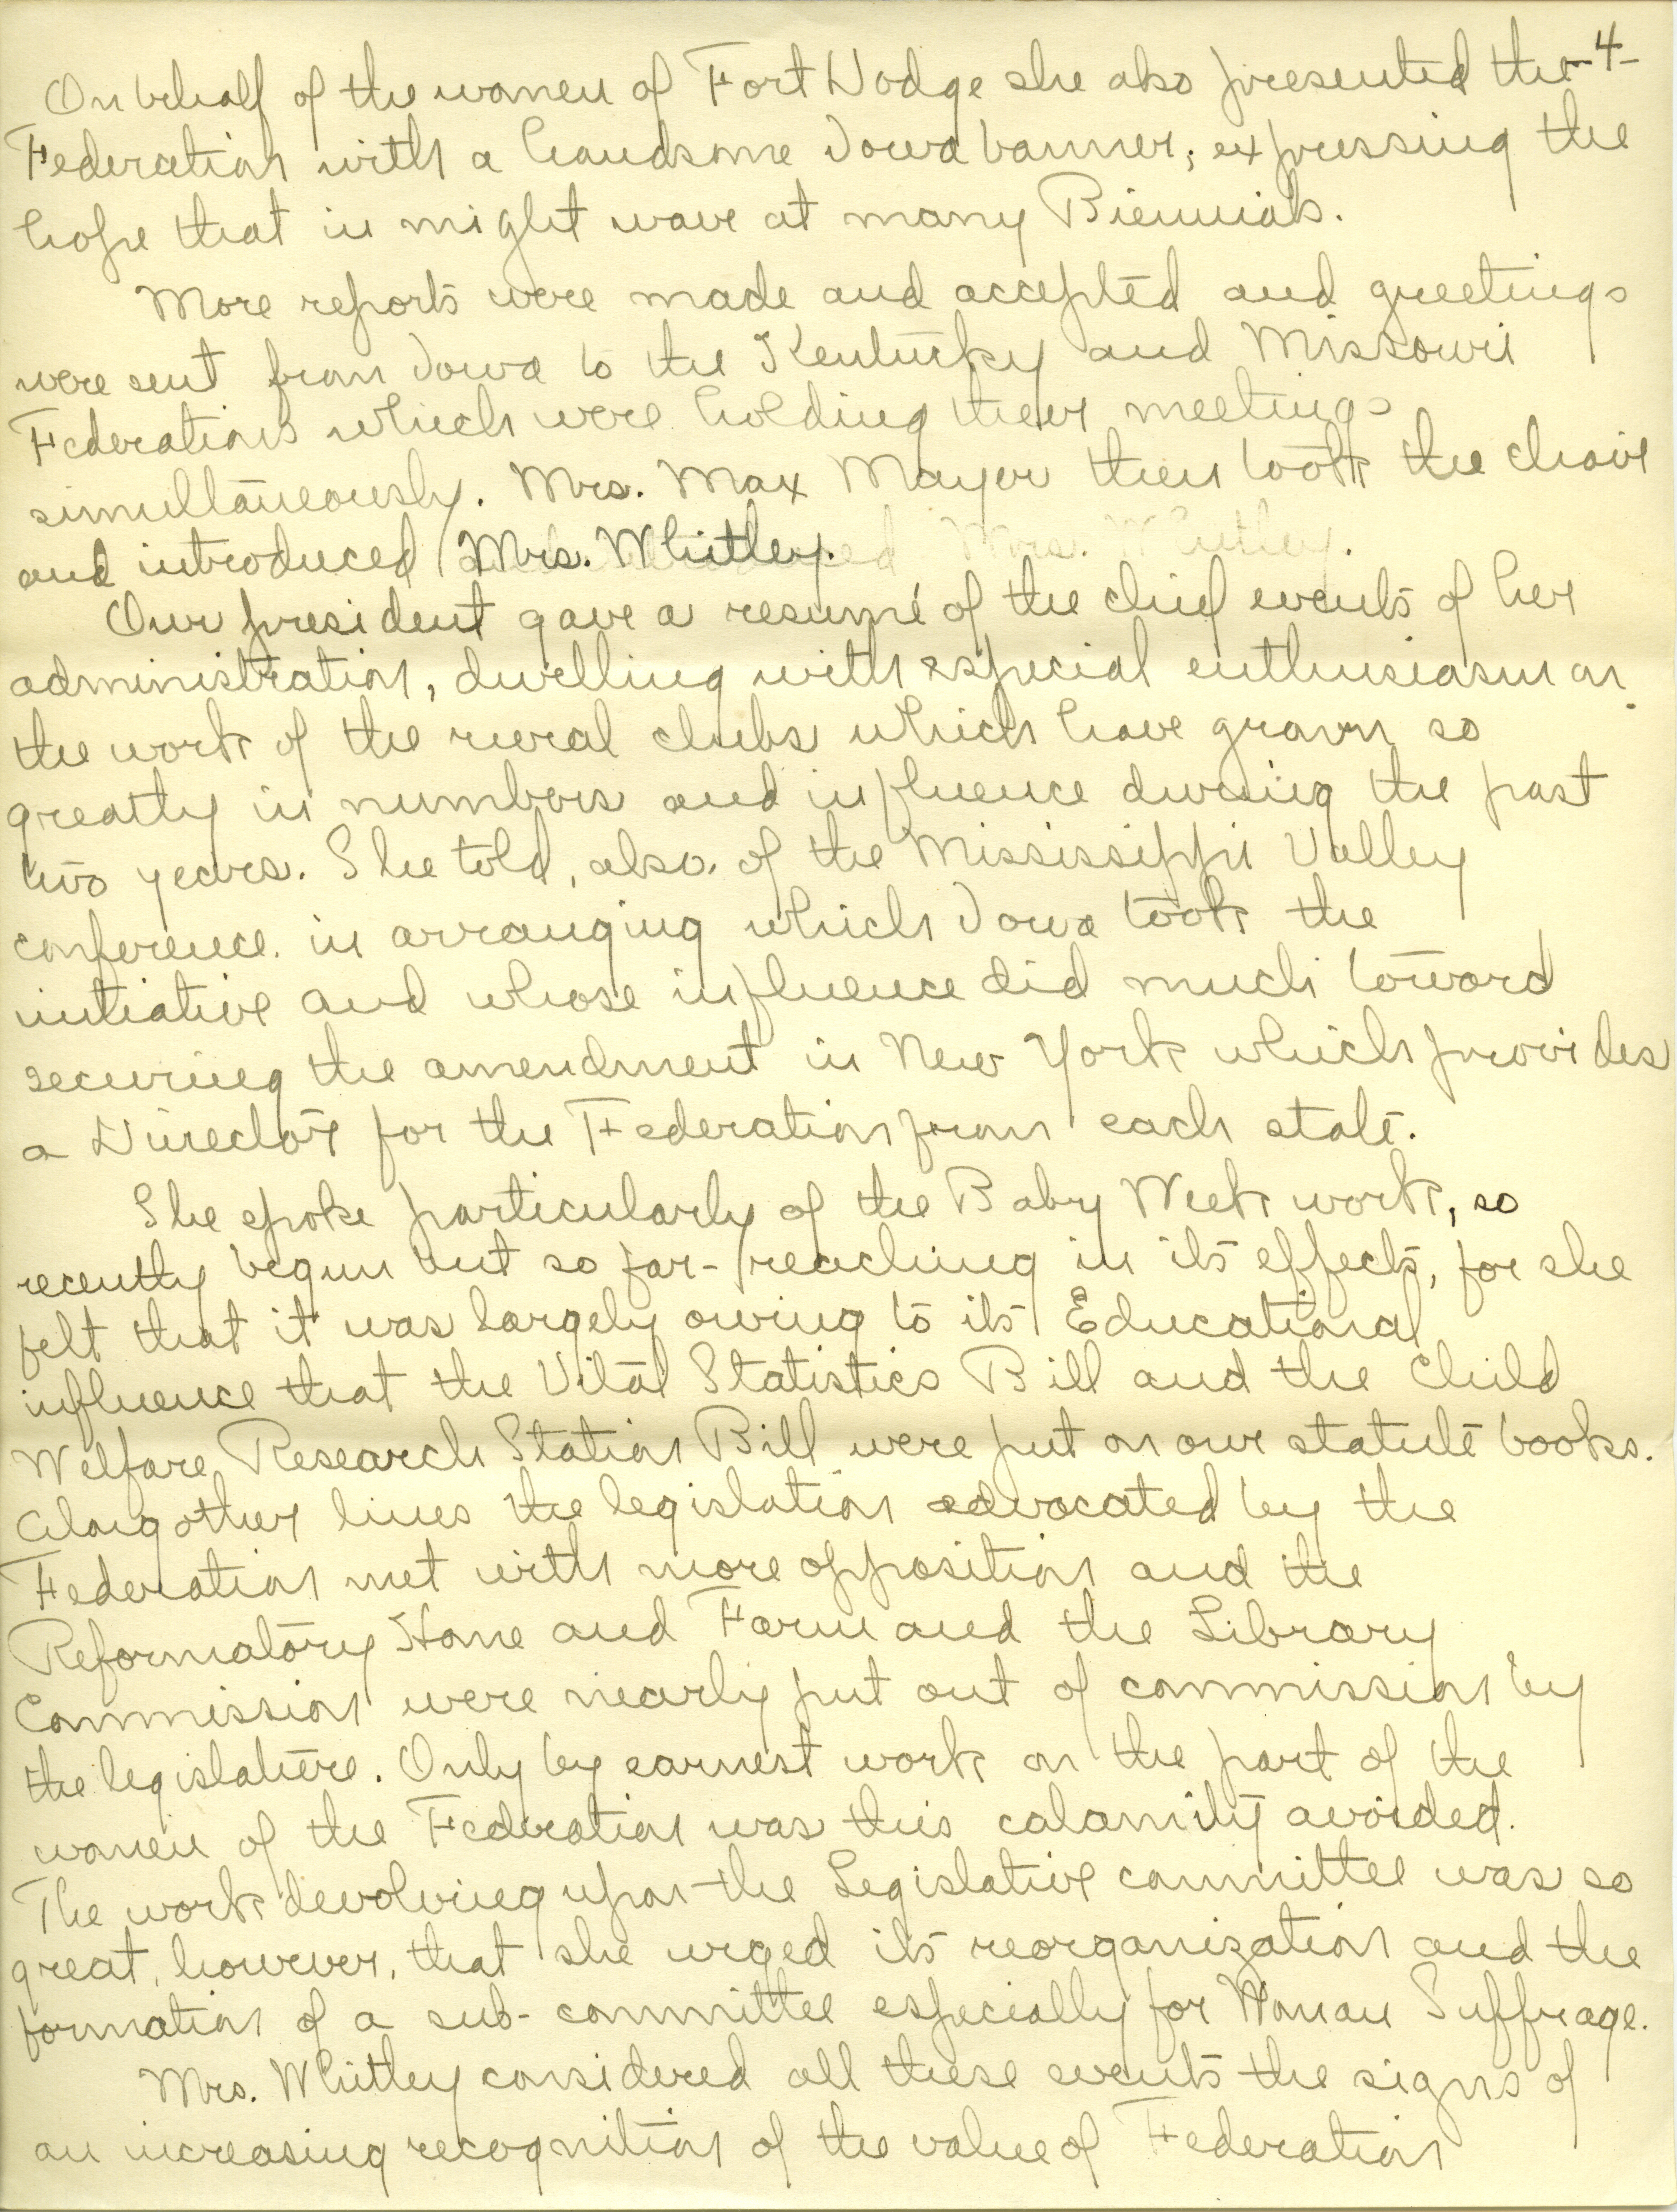 -4-
On behalf of the women of Fort Dodge she also presented the
Federation with a handsome Iowa banner; expressing the
hope that in might wave at many Biennials.
More reports were made and accepted and greetings
were sent from Iowa to the Kentucky and Missouri
Federations which were holding their meetings
simultaneously. Mrs. Max Mayer then took the chair
and introduced Mrs. Whitley.
Our president gave a resumé of the chief events of her
administration, dwelling with especial enthusiasm on
the work of the rural clubs which have grown so
greatly in numbers and influence during the past
two years. She told, also, of the Mississippi Valley
conference. in arranging which Iowa took the
initiative and whose influence did much toward
securing the amendment in New York which provides
a Director for the Federation from each state.
She spoke particularly of the Baby Week work, so
recently begun but so far-reaching in its effects, for she
felt that it was largely owing to its Educational
influence that the Vital Statistics Bill and the Child
Welfare Research Station Bill were put on our statute books.
Along other lines the legislation advocated by the
Federation met with more opposition and the
Reformatory Home and Farm and the Library
Commission were nearly put out of commission by
the legislature. Only by earnest work on the part of the
women of the Federation was this calamity avoided.
The work devolving upon the Legislative committee was so
great, however, that she urged its reorganization and the
formation of a sub-committee especially for Woman Suffrage.
Mrs. Whitley considered all these events the signs of
an increasing recognition of the value of Federation